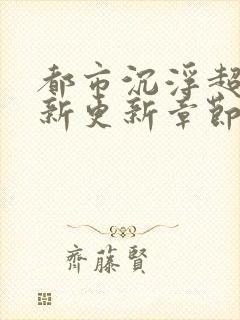 都市沉浮超
新更新章節
齊藤賢